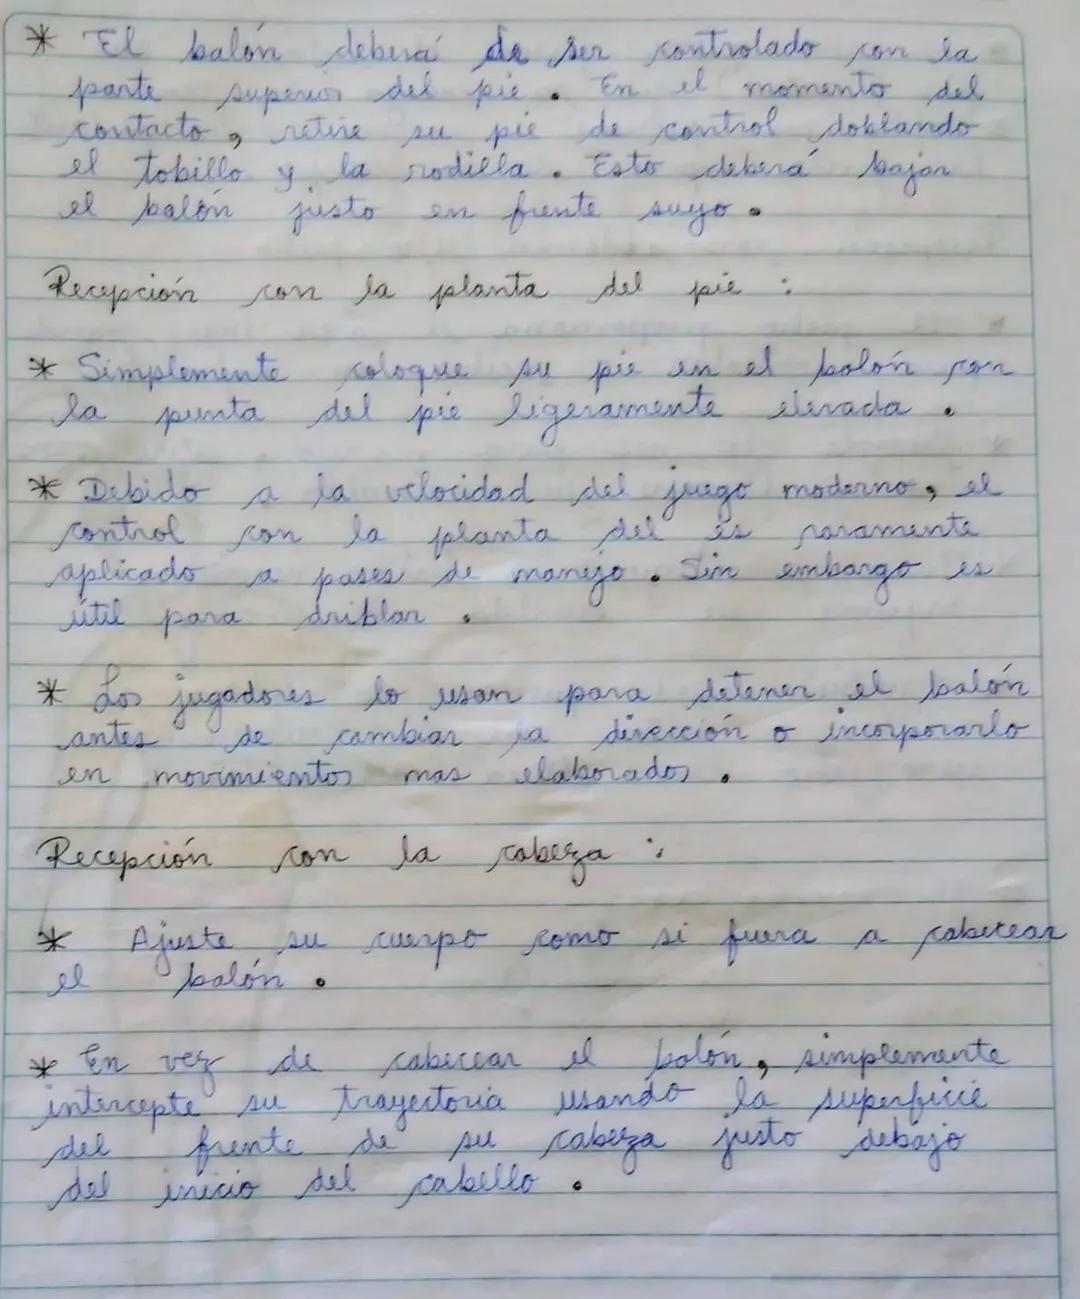 * El balón deberá de ser controlado con la
parte superior del pie. En el momento del
contacto, retire su pie de control doblando
el tobillo y la rodilla. Esto deberá bajar
el balón justo en frente suyo.
Recepción con la planta del pie:
* Simplemente coloque su pie en el balón con
la punta del pie ligeramente elevada.
* Debido a la velocidad del juego moderno, el
control con la planta del es raramente
aplicado a pases de manejo. Sin embargo es
útil para driblar.
* Los jugadores lo usan para detener el balón
antes de cambiar la dirección o incorporarlo
en movimientos mas elaborados.
Recepción con la cabeza:
* Ajuste su cuerpo como si fuera a cabecear
el balón.
* En vez de cabecear el balón, simplemente
intercepte su trayectoria usando la superficie
del frente de su cabeza justo debajo
del inicio del cabello.